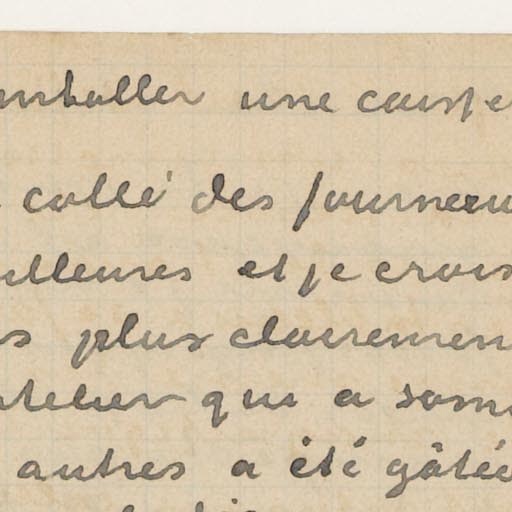 emballer une caisse
collé des journeau
illeures et je crois
s plus clairemen
atelier qui a som
autres a été gâtée